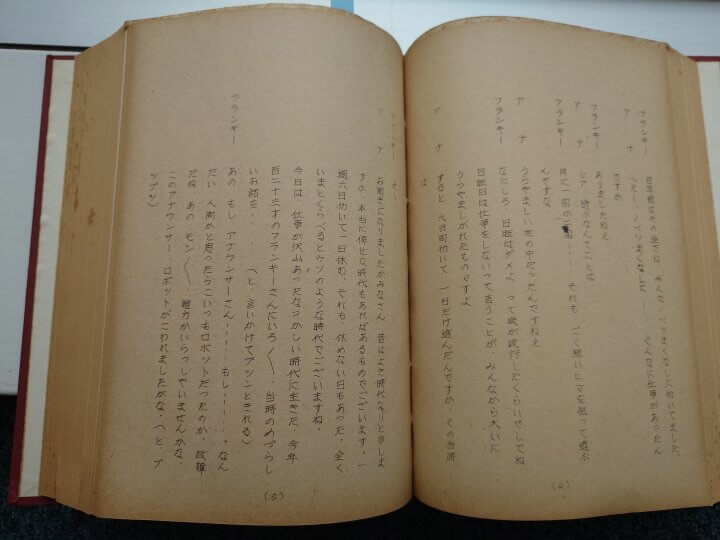 フランキー 百年前はその逆でね、みんなノベツまくなしに仂いてました。
アナ へえー、ノベツまくなしに……そんなに仕事があったん
ですか
フランキー ありましたねえ
アナ ヒマ 遊ぶなんてことは
フランキー 月に一回か二回……それも、ごく短いヒマを狙って遊ぶ
んですな、
アナ うらやましい世の中だったんですねえ
フランキー なにしろ、日曜はダメよ、って唄が流行したくらいでしてね
日曜日は仕事をしないって言うことが、みんなから大いに
うらやましがられたものですよ
アナ すると、六日間仂いて、一日だけ遊んだんですか、その当時
は
(4)
フランキー えー、
アナ お聞きになりましたかみなさん 昔はよき時代なりと申しま
すが、本当に倖せな時代もあればあるものでございます。一
週六日仂いて一日休む、それも、休めない日もあった、全く
いまとくらべるとウソのような時代でございますね、
今日は、仕事が沢山あったなつかしい時代に生きた、今年
百二十三才のフランキーさんにいろ〱、当時のめづらし
いお話を！ (と、言いかけてプツンときれる)
フランキー あの、もし アナウンサーさん……もし……、なん
だい、人間かと思ったらこいつもロボットだったのか、故障
だな、あの モシ〱、誰方かいらっしやいませんかな、
このアナウンサー ロボットがこわれましたがな、(と、プ
ツプツ)
(5)